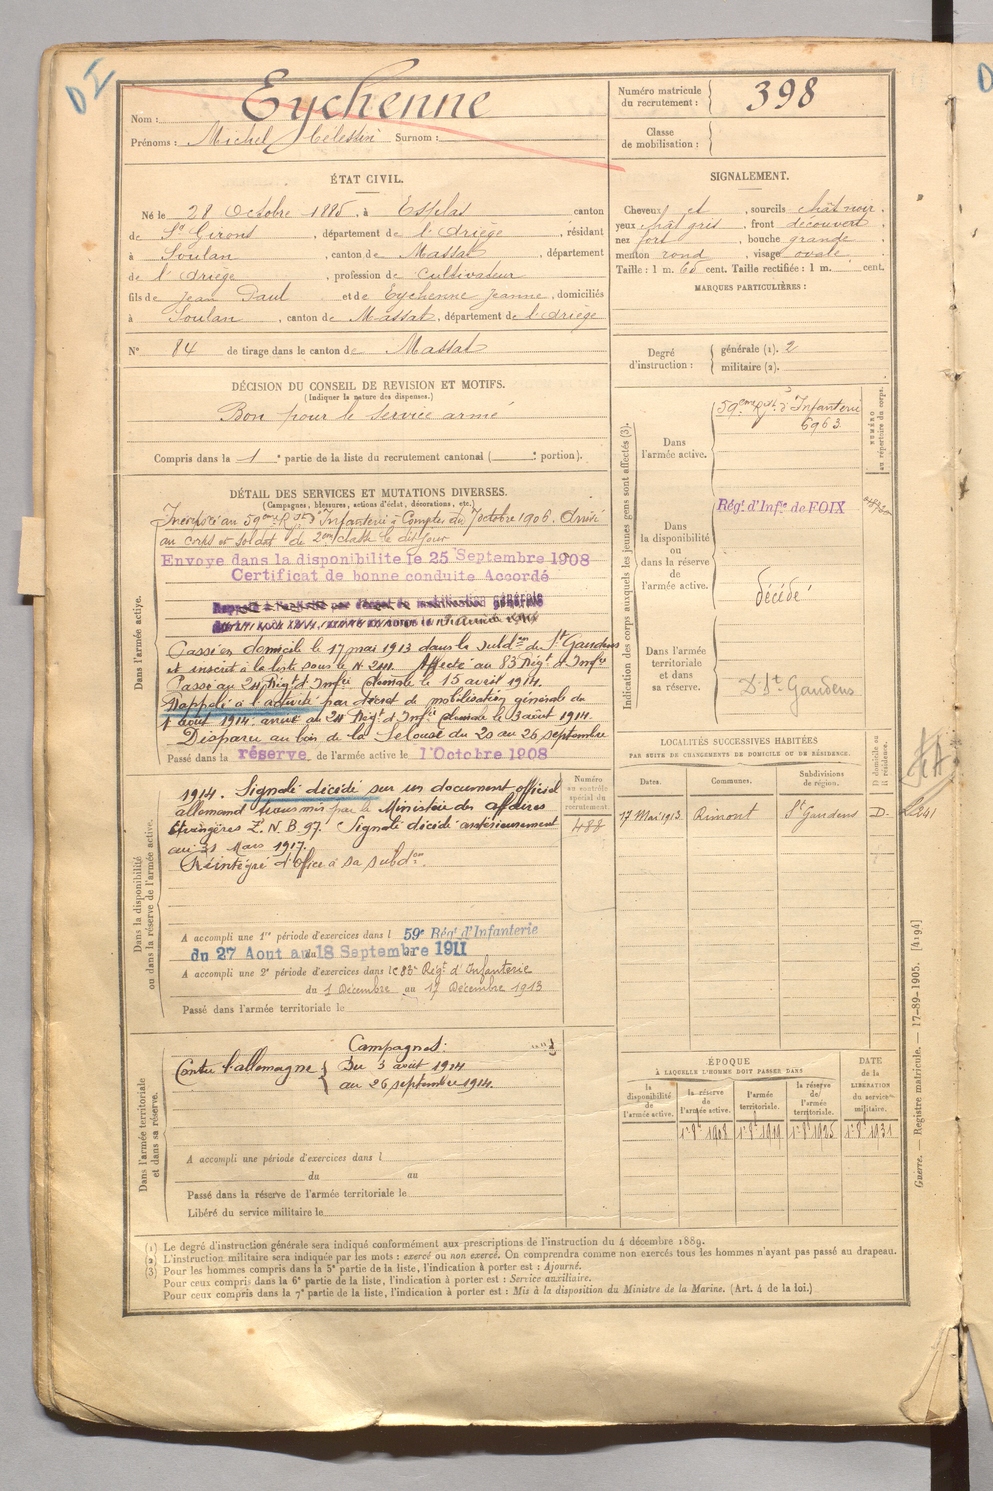 Nom : Eychenne
Prénoms : Michel Célestin Surnom :
Numéro matricule du recrutement : 398
Classe de mobilisation :
ÉTAT CIVIL.
Né le 28 Octobre 1885, à Esplas canton
de St Girons, département de l'Ariège, résidant
à Soulan, canton de Massat, département
de l'Ariège, profession de cultivateur
fils de Jean Paul et de Eychenne Jeanne, domiciliés
à Soulan, canton de Massat, département de l'Ariège
N° 84 de tirage dans le canton de Massat
SIGNALEMENT.
Cheveux et , sourcils chât noir.
yeux chât gris, front découvert
nez fort, bouche grande
menton rond, visage ovale.
Taille : 1 m. 65 cent. Taille rectifiée : 1 m. cent.
MARQUES PARTICULIÈRES :
Degré d'instruction : générale (1). 2
militaire (2).
DÉCISION DU CONSEIL DE REVISION ET MOTIFS.
(Indiquer la nature des dispenses.)
Bon pour le service armé
Compris dans la 1e partie de la liste du recrutement cantonal ( e portion).
DÉTAIL DES SERVICES ET MUTATIONS DIVERSES.
(Campagnes, blessures, actions d'éclat, décorations, etc.)
Dans l'armée active.
Incorporé au 59eme Rgt d'Infanterie à Compter du 7 octobre 1906. Arrivé
au corps et soldat de 2eme classe le dit jour
Envoye dans la disponibilite le 25 Septembre 1908
Certificat de bonne conduite Accordé
Passé en domicile le 17 mai 1913 dans la subdon de St Gaudens
et inscrit à la liste sous le N 241. Affecté au 83 Régt d'Infie
Passé au 211 Régt d'Infie le 15 avril 1914.
Rappelé à l'activité par décret de mobilisation générale du
1 août 1914. arrivé au 211 Régt d'Infie le 3 août 1914.
Disparu au bois de la Selouse du 20 au 26 septembre
Passé dans la réserve de l'armée active le 1 Octobre 1908
Dans la disponibilité ou dans la réserve de l'armée active.
1914. Signalé décédé sur un document officiel
allemand transmis par le Ministère des affaires
Etrangères Z. N. B 97. Signalé décédé antérieurement
au 31 Mars 1917.
Réintégré d'office à sa subdon.
Numéro au contrôle spécial du recrutement.
488
A accompli une 1re période d'exercices dans l 59e Régt d'Infanterie
du 27 Aout au 18 Septembre 1911
A accompli une 2e période d'exercices dans le 83e Régt d'Infanterie
du 1 Décembre au 17 Décembre 1913
Passé dans l'armée territoriale le
Dans l'armée territoriale et dans sa réserve.
Campagnes :
Contre l'allemagne { Du 3 août 1914
au 26 septembre 1914.
A accompli une période d'exercices dans l
du au
Passé dans la réserve de l'armée territoriale le
Libéré du service militaire le
Indication des corps auxquels les jeunes gens sont affectés (3).
Dans l'armée active.
59eme Rgt d'Infanterie
6963
NUMÉRO au répertoire du corps.
Dans la disponibilité ou dans la réserve de l'armée active.
Régt d'Infie de FOIX
décédé
Dans l'armée territoriale et dans sa réserve.
D. St Gaudens
LOCALITÉS SUCCESSIVES HABITÉES
PAR SUITE DE CHANGEMENTS DE DOMICILE OU DE RÉSIDENCE.
Dates. Communes. Subdivisions de région. D domicile ou R résidence.
17 Mai 1913 Rimont St Gaudens D.
ÉPOQUE
À LAQUELLE L'HOMME DOIT PASSER DANS
la disponibilité de l'armée active. la réserve de l'armée active. l'armée territoriale. la réserve de l'armée territoriale.
DATE de la LIBÉRATION du service militaire.
1er 8bre 1908 1er 8bre 1919 1er 8bre 1925 1er 8bre 1931
Guerre. — Registre matricule. — 17-89-1905. [4194]
(1) Le degré d'instruction générale sera indiqué conformément aux prescriptions de l'instruction du 4 décembre 1889.
(2) L'instruction militaire sera indiquée par les mots : exercé ou non exercé. On comprendra comme non exercés tous les hommes n'ayant pas passé au drapeau.
(3) Pour les hommes compris dans la 5e partie de la liste, l'indication à porter est : Ajourné.
Pour ceux compris dans la 6e partie de la liste, l'indication à porter est : Service auxiliaire.
Pour ceux compris dans la 7e partie de la liste, l'indication à porter est : Mis à la disposition du Ministre de la Marine. (Art. 4 de la loi.)